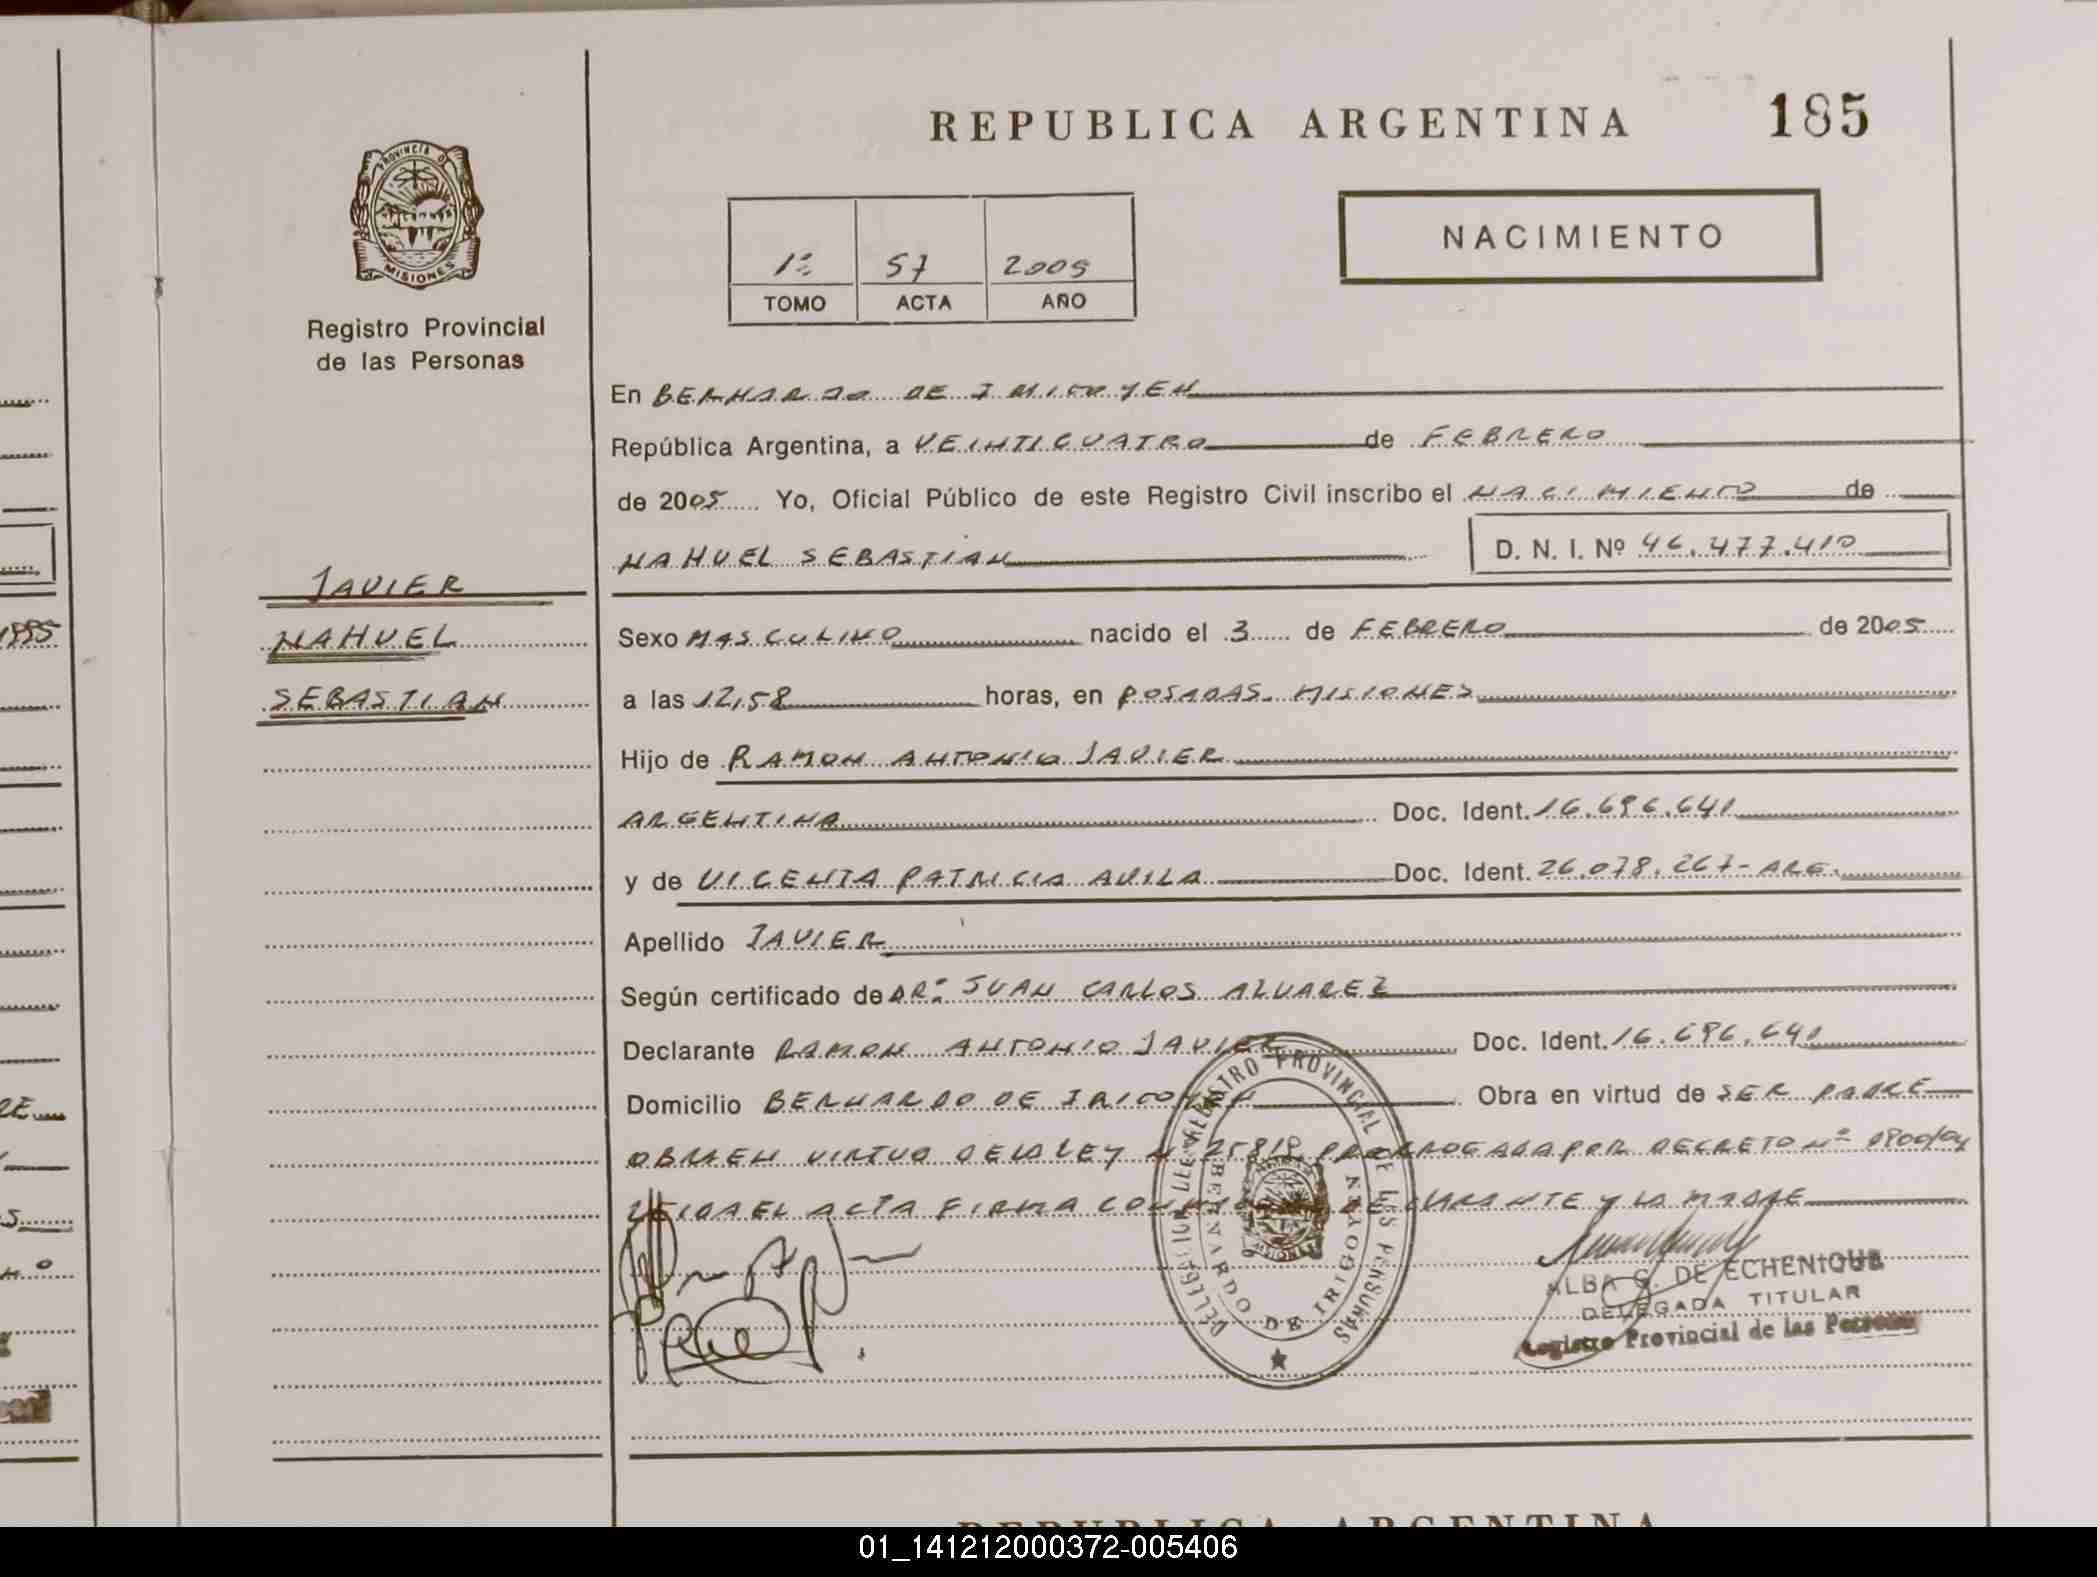 REPUBLICA ARGENTINA 185
PROVINCIA D
MISIONES
Registro Provincial
de las Personas
NACIMIENTO
1º 57 2005
TOMO ACTA AÑO
En BERNARDO DE IRIGOYEN
República Argentina, a VEINTICUATRO de FEBRERO
de 2005 Yo, Oficial Público de este Registro Civil inscribo el NACIMIENTO de
NAHUEL SEBASTIAN D. N. I. Nº 46.477.410
JAVIER
NAHUEL
SEBASTIAN
Sexo MASCULINO nacido el 3 de FEBRERO de 2005
a las 12,58 horas, en POSADAS. MISIONES
Hijo de RAMON ANTONIO JAVIER
ARGENTINA Doc. Ident. 16.696.641
y de VICENTA PATRICIA AVILA Doc. Ident. 26.078.267- ARG.
Apellido JAVIER
Según certificado de DR. JUAN CARLOS ALVAREZ
Declarante RAMON ANTONIO JAVIER Doc. Ident. 16.696.641
Domicilio BERNARDO DE IRIGOYEN Obra en virtud de SER PADRE
OBRA EN VIRTUD DE LA LEY Nº 25819 PRORROGADA POR DECRETO Nº 0800/04
LEIDA EL ACTA FIRMA CONMIGO EL DECLARANTE Y LA MADRE
DELEGACION DEL REGISTRO PROVINCIAL DE LAS PERSONAS
BERNARDO DE IRIGOYEN
ALBA G. DE ECHENIQUE
DELEGADA TITULAR
Registro Provincial de las Personas
REPUBLICA ARGENTINA
01_141212000372-005406